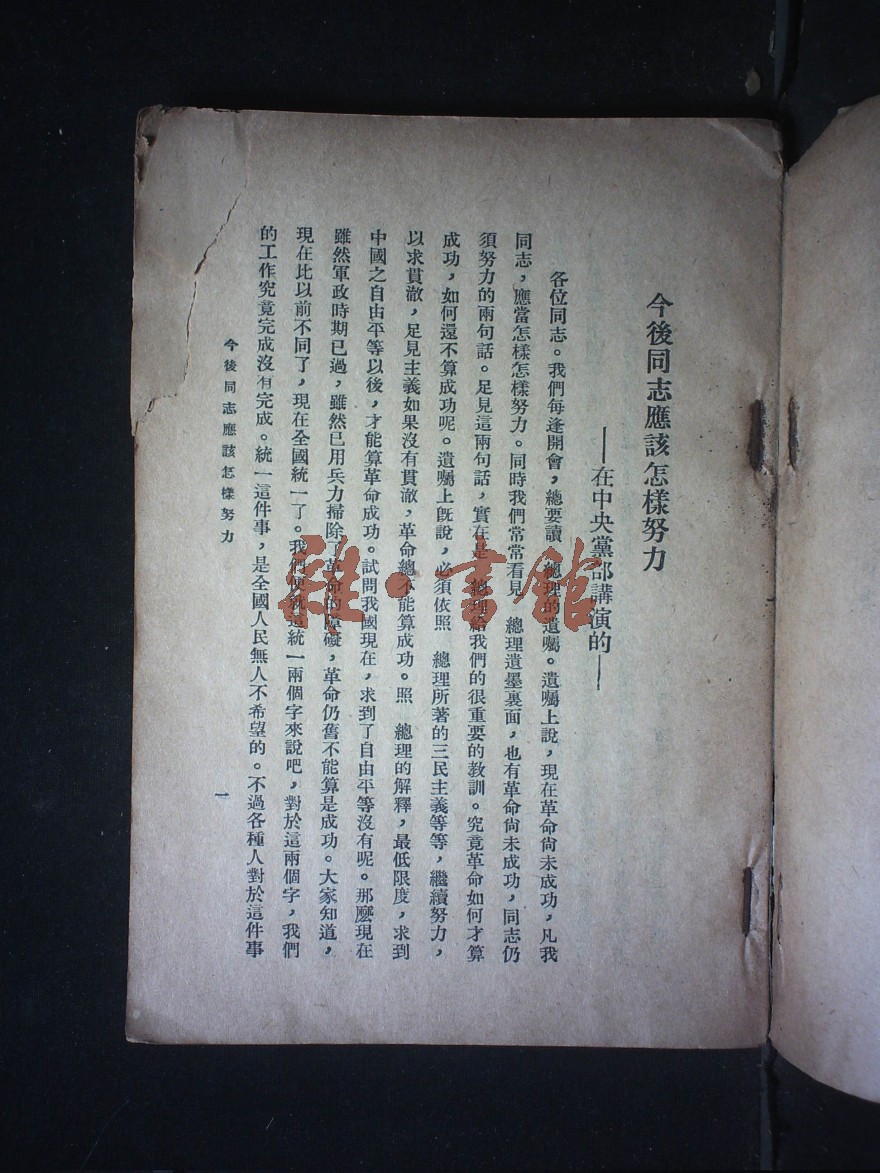 今後同志應該怎樣努力
——在中央黨部講演的——
各位同志。我們每逢開會，總要讀　總理的遺囑。遺囑上說，現在革命尙未成功，凡我
同志，應當怎樣怎樣努力。同時我們常常看見　總理遺墨裏面，也有革命尙未成功，同志仍
須努力的兩句話。足見這兩句話，實在是　總理給我們的很重要的教訓。究竟革命如何才算
成功，如何還不算成功呢。遺囑上旣說，必須依照　總理所著的三民主義等等，繼續努力，
以求貫澈，足見主義如果沒有貫澈，革命總不能算成功。照　總理的解釋，最低限度，求到
中國之自由平等以後，才能算革命成功。試問我國現在，求到了自由平等沒有呢。那麽現在
雖然軍政時期已過，雖然已用兵力掃除了革命的障礙，革命仍舊不能算是成功。大家知道，
現在比以前不同了，現在全國統一了。我們便就這統一兩個字來說吧，對於這兩個字，我們
的工作究竟完成沒有完成。統一這件事，是全國人民無人不希望的。不過各種人對於這件事
今後同志應該怎樣努力
一
雜·書館